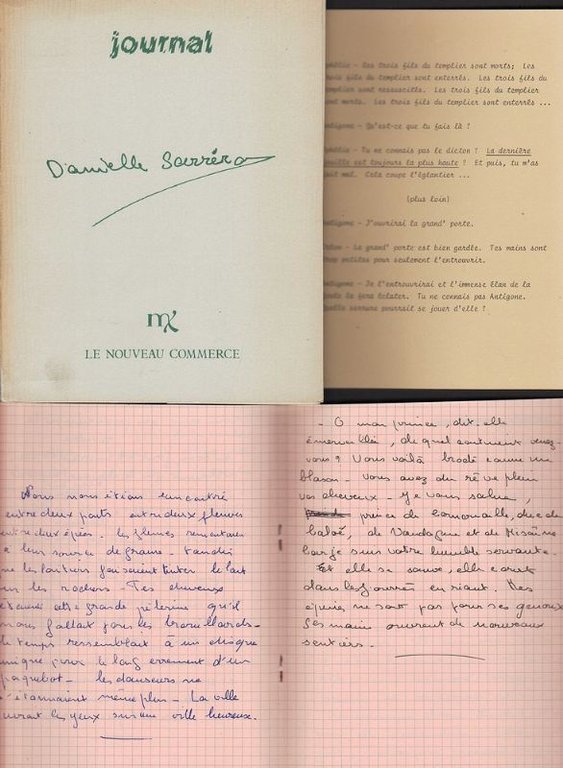 journal
Danielle Sarréra
LE NOUVEAU COMMERCE
- Les trois fils du templier sont morts; Les
trois fils du templier sont enterrés. Les trois fils du
templier sont ressuscités. Les trois fils du templier
sont morts. Les trois fils du templier sont enterrés ...
Antigone - Qu'est-ce que tu fais là ?
- Tu ne connais pas le dicton ? La dernière
est toujours la plus haute ? Et puis, tu m'as
fait mal. Cela coupe l'églantier ...
(plus loin)
Antigone - J'ouvrirai la grand' porte.
- La grand' porte est bien gardée. Tes mains sont
trop petites pour seulement l'entrouvrir.
Antigone - Je l'entrouvrirai et l'immense élan de la
la fera éclater. Tu ne connais pas Antigone.
Quelle serrure pourrait se jouer d'elle ?
Nous nous étions rencontré
entre deux ponts entre deux fleuves
entre deux épées. les fleuves remontaient
à leur source de graine. tandis
que les laitiers faisaient tinter le lait
sur les rochers - Tes cheveux
étaient cette grande pèlerine qu'il
nous fallait pour les brouillards.
le temps ressemblait à un disque
unique pour le long errement d'un
paquebot - les danseurs ne
s'étonnaient même plus - La ville
ouvrait les yeux sur une ville heureuse.
- O mon prince, dit-elle
émerveillée, de quel continent venez-
vous ? Vous voilà brodé comme un
blason - vous avez du rêve plein
vos cheveux - je vous salue,
prince de Cornouaille, duc de
de et de
je suis votre humble servante.
Et elle se sauve, elle court
dans les fourrés en riant. Les
épines ne sont pas pour ses genoux
Ses mains ouvrent de nouveaux
sentiers.